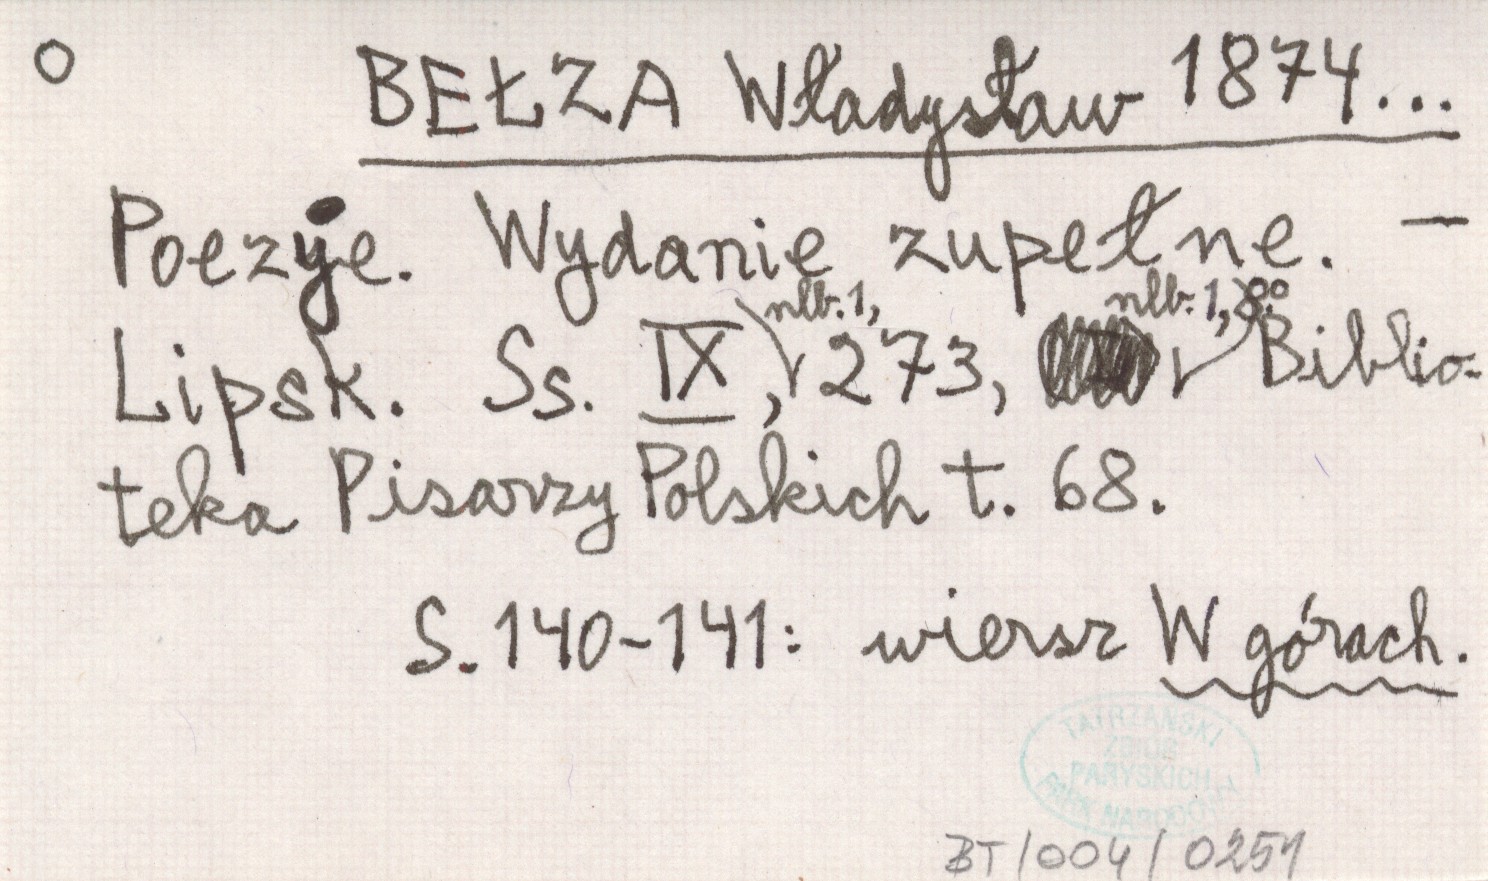 BEŁZA Władysław 1874...
Poezje. Wydanie zupełne. —
Lipsk. Ss. IX, nlb. 1, 273, nlb. 1, 8° Biblio-
teka Pisarzy Polskich t. 68.
S. 140-141: wiersz W górach.
TATRZAŃSKI
ZBIÓR
PARYSKICH
PARK NARODOWY
BT/004/0251